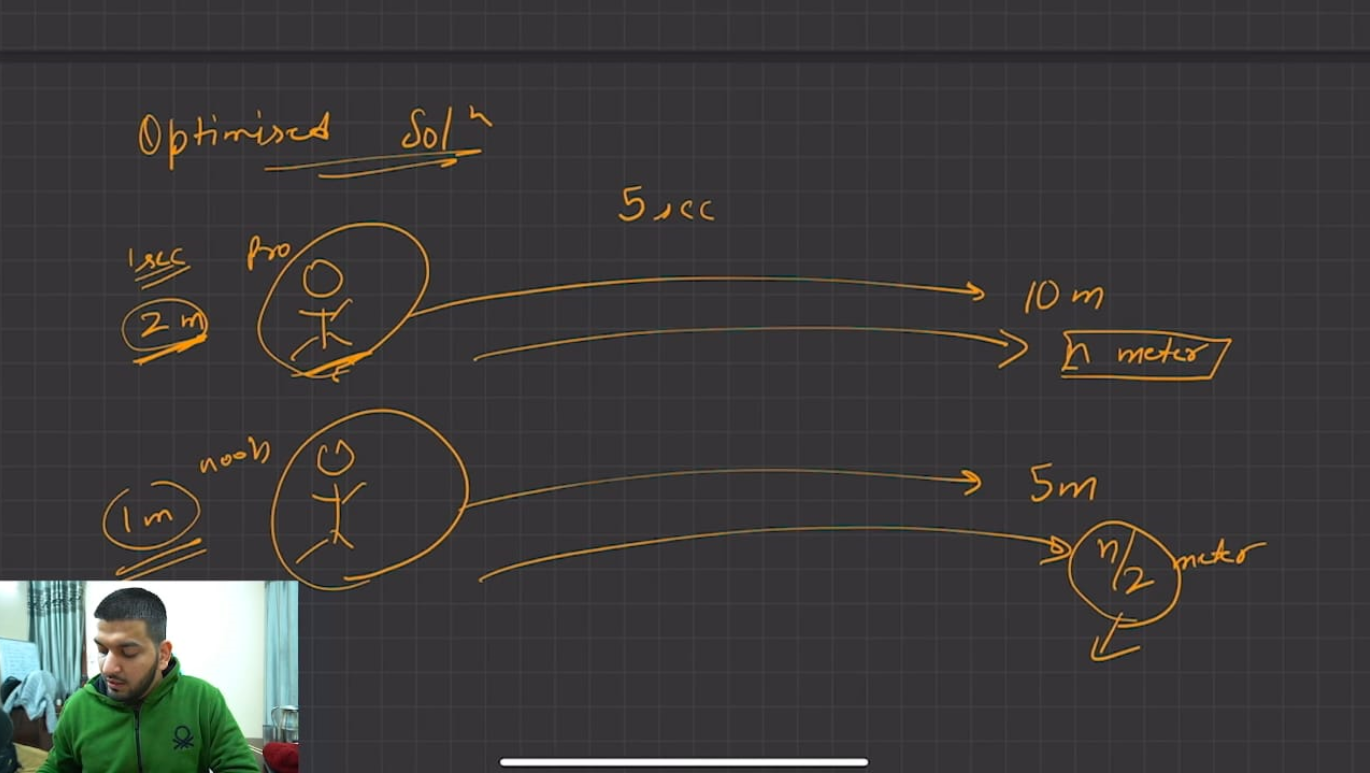 Optimised Solⁿ
5 sec
1 sec
Pro
2 m
10 m
n meter
noob
1 m
5m
n/2 meter